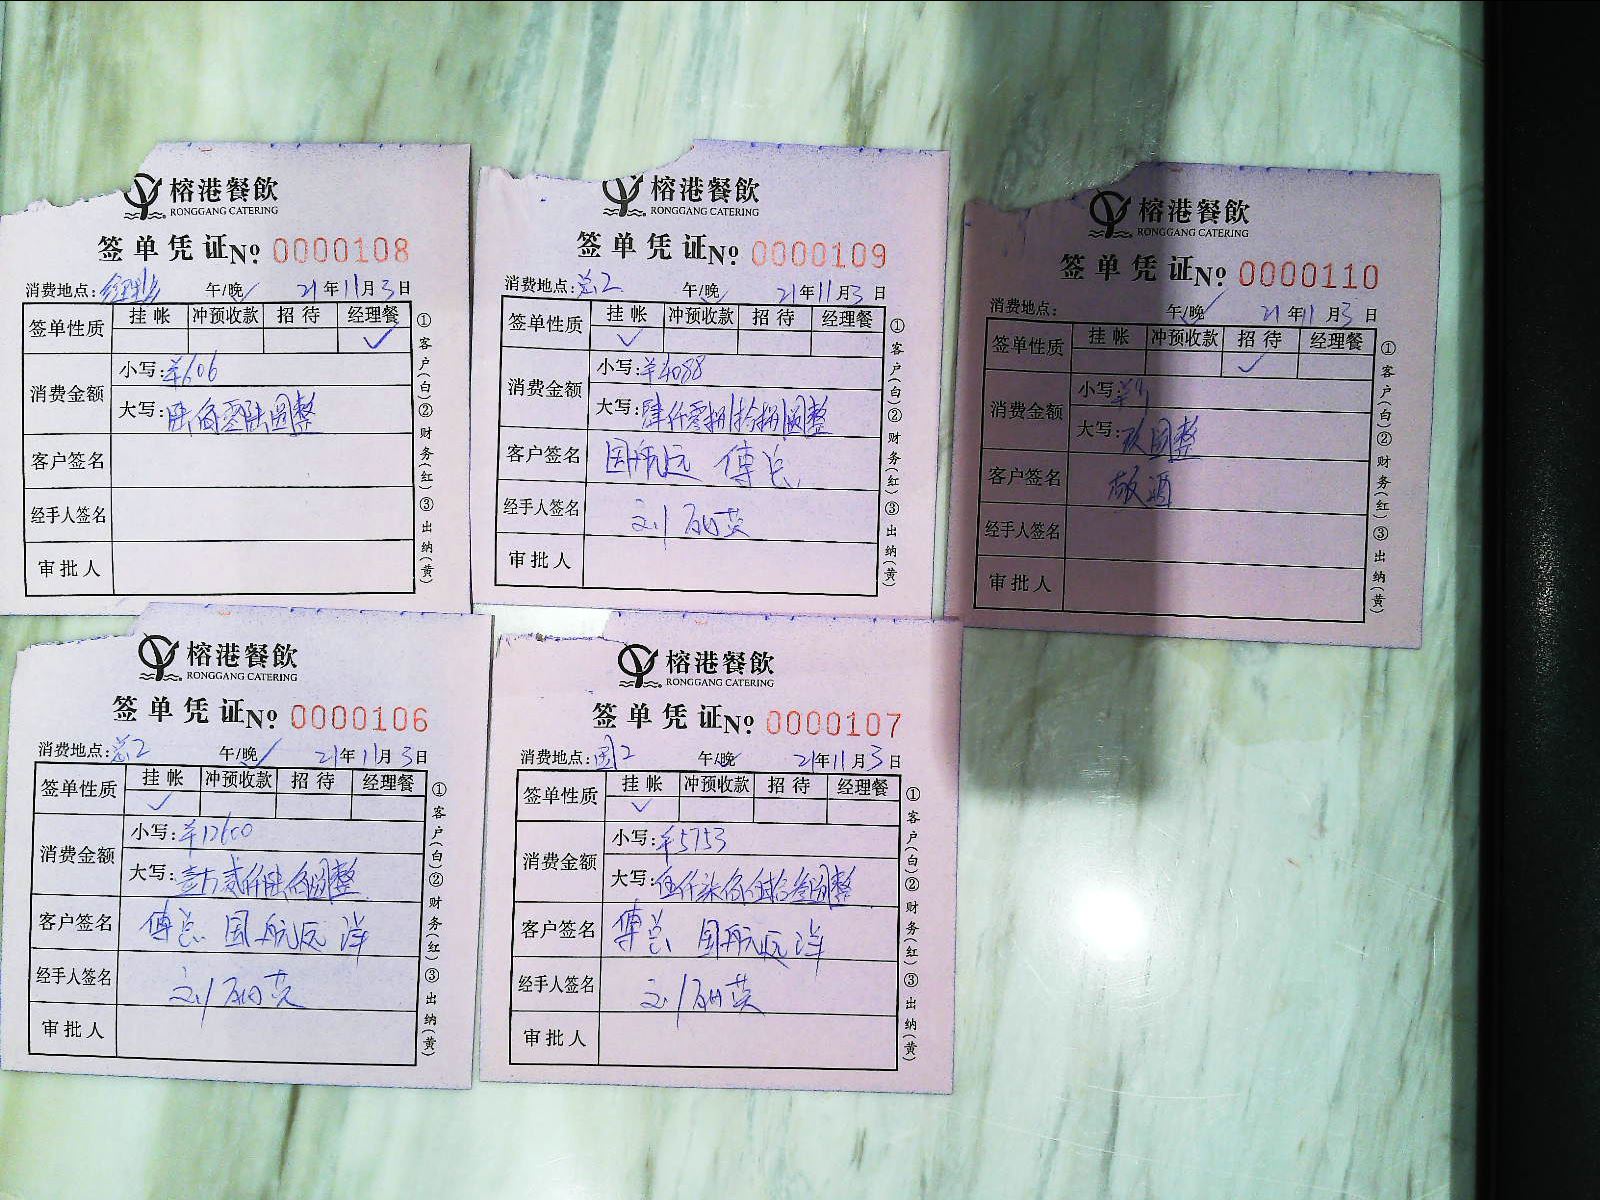 榕港餐飲
RONGGANG CATERING
签单凭证 № 0000108
消费地点: 午/晚 21年11月3日
签单性质 挂帐 冲预收款 招待 经理餐
✓
消费金额
小写:¥606
大写:陆佰零陆圆整
客户签名
经手人签名
审批人
①客户(白)②财务(红)③出纳(黄)
榕港餐飲
RONGGANG CATERING
签单凭证 № 0000109
消费地点:总2 午/晚 21年11月3日
签单性质 挂帐 冲预收款 招待 经理餐
✓
消费金额
小写:¥4088
大写:肆仟零捌拾捌圆整
客户签名 国航远 傅总
经手人签名 刘
审批人
①客户(白)②财务(红)③出纳(黄)
榕港餐飲
RONGGANG CATERING
签单凭证 № 0000110
消费地点: 午/晚 21年11月3日
签单性质 挂帐 冲预收款 招待 经理餐
✓
消费金额
小写:
大写:玖圆整
客户签名 敬酒
经手人签名
审批人
①客户(白)②财务(红)③出纳(黄)
榕港餐飲
RONGGANG CATERING
签单凭证 № 0000106
消费地点:总2 午/晚 21年11月3日
签单性质 挂帐 冲预收款 招待 经理餐
✓
消费金额
小写:¥12600
大写:壹万贰仟陆佰圆整
客户签名 傅总 国航远洋
经手人签名 刘
审批人
①客户(白)②财务(红)③出纳(黄)
榕港餐飲
RONGGANG CATERING
签单凭证 № 0000107
消费地点:国2 午/晚 21年11月3日
签单性质 挂帐 冲预收款 招待 经理餐
✓
消费金额
小写:¥5753
大写:伍仟柒佰伍拾叁圆整
客户签名 傅总 国航远洋
经手人签名 刘
审批人
①客户(白)②财务(红)③出纳(黄)